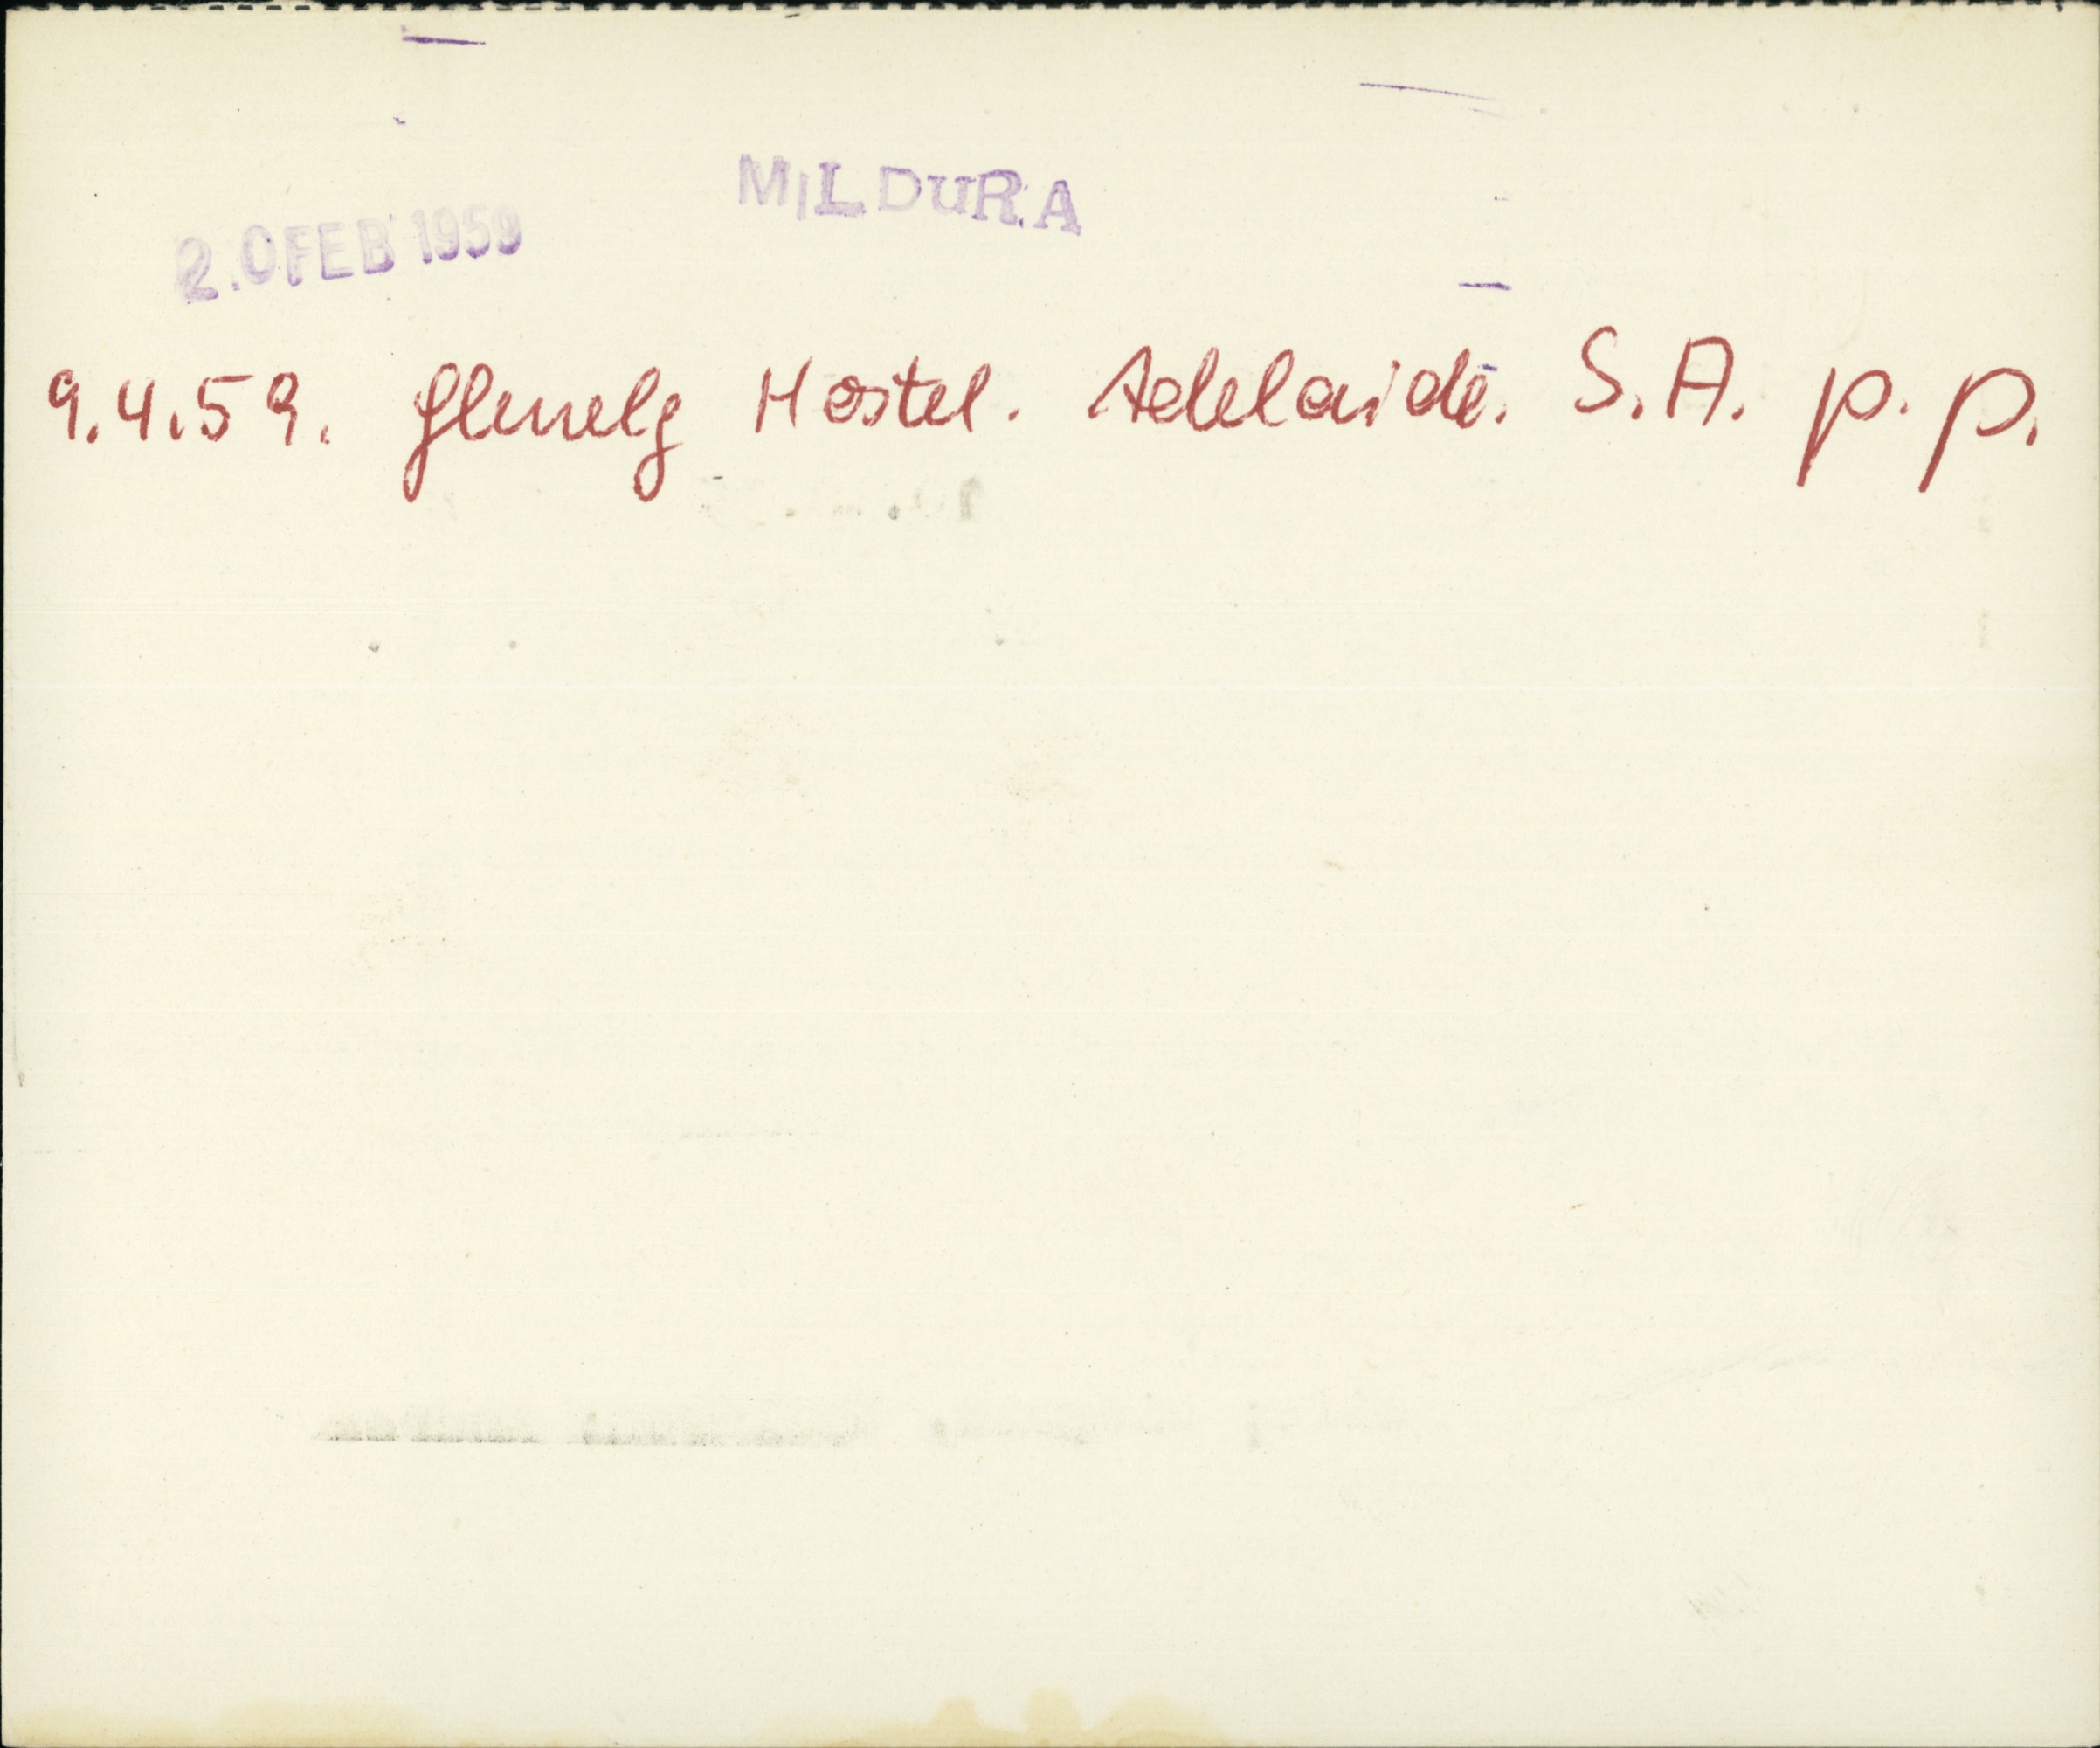 MILDURA
2.0 FEB 1959
9.4.59. Glenelg Hostel. Adelaide. S.A. p.p.